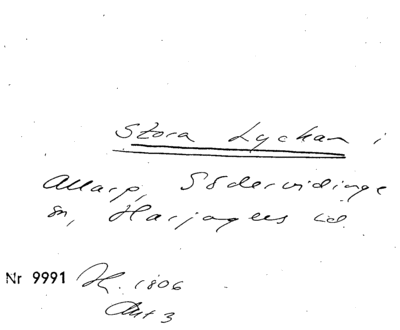 Stora Lyckan i
Allarp, Södervidinge
sn, Harjagers hd.
Nr 9991 H. 1806
Akt 3